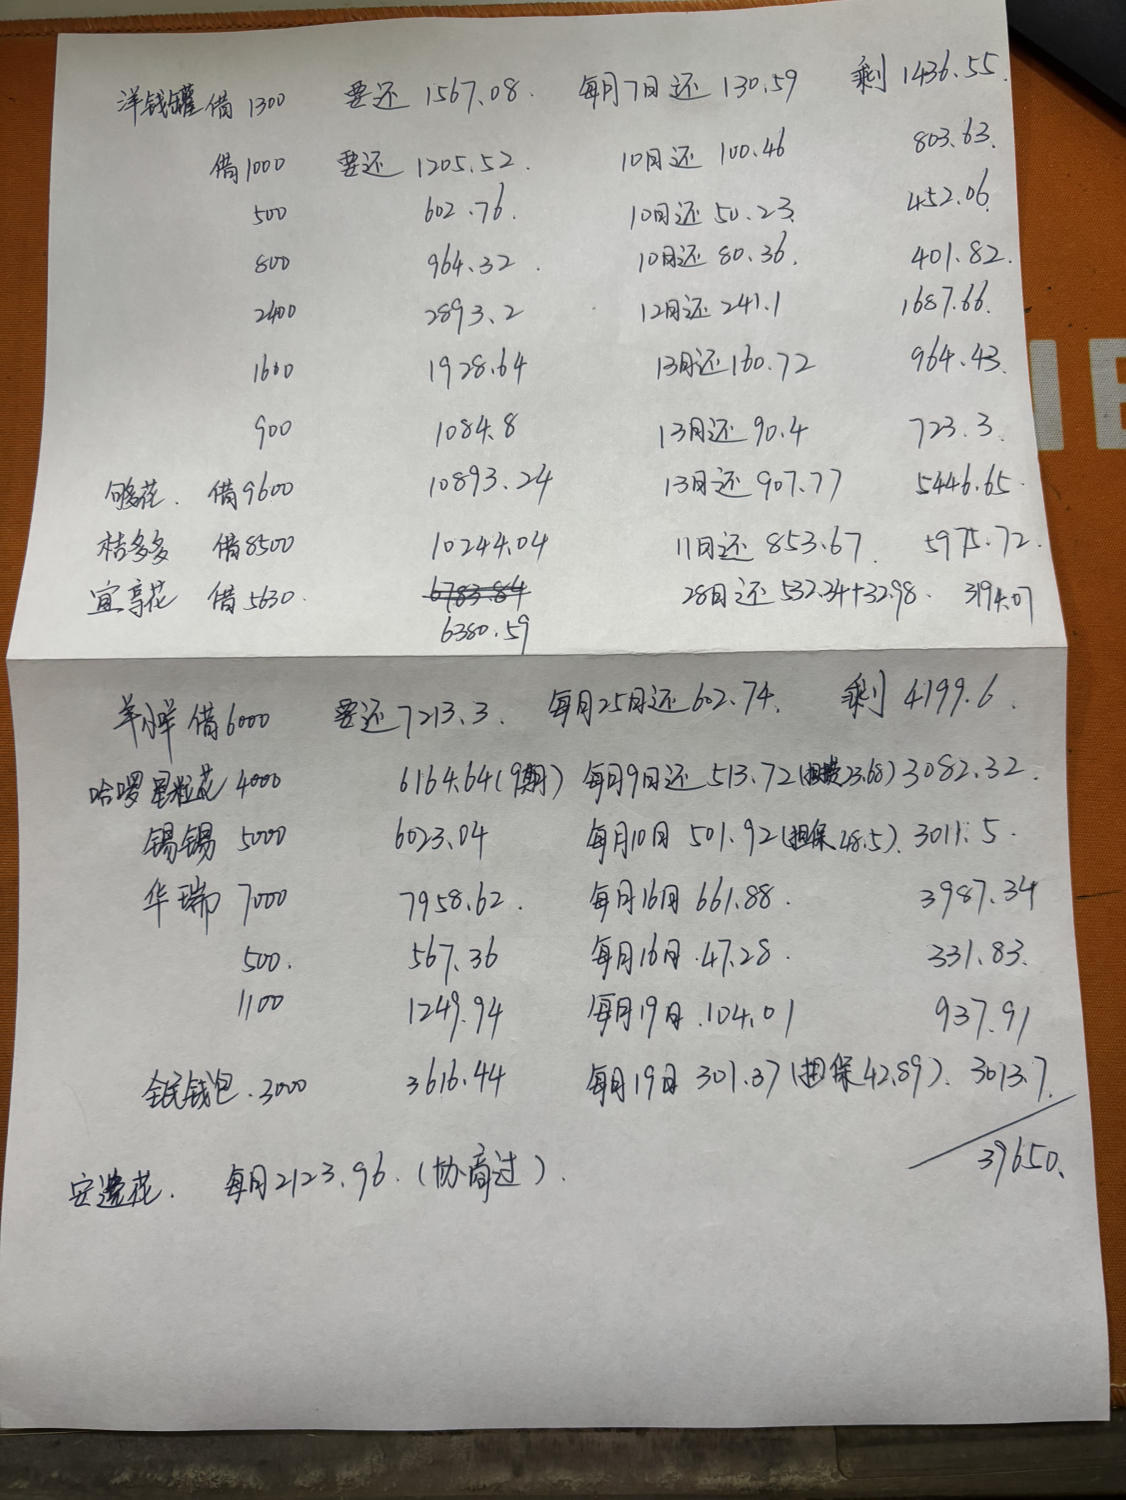 洋钱罐 借1300 要还 1567.08. 每月7日还 130.59 剩 1436.55.
借1000 要还 1205.52. 10日还 100.46 803.63.
500 602.76. 10日还 50.23. 452.06.
800 964.32. 10日还 80.36. 401.82.
2400 2893.2 12日还 241.1 1687.66.
1600 1928.64 13日还 160.72 964.43.
900 1084.8 13日还 90.4 723.3.
够花. 借9600 10893.24 13日还 907.77 5446.65.
桔多多 借8500 10244.04 11日还 853.67. 5975.72.
宜享花 借5630. 6783.84 28日还 532.34+32.98. 3194.07
6380.59
羊小咩 借6000 要还 7213.3. 每月25日还 602.74. 剩 4199.6.
哈啰 星粒花 4000 6164.64(9期) 每月9日还 513.72(23.68) 3082.32.
锡锡 5000 6023.04 每月10日 501.92(担保48.5). 3011.5.
华瑞 7000 7958.62. 每月16日 661.88. 3987.34
500. 567.36 每月16日.47.28. 331.83.
1100 1249.94 每月19日.104.01 937.91
全民钱包.3000 3616.44 每月19日 301.37(担保42.89). 3013.7.
39650.
安逸花. 每月2123.96.(协商过).
IE